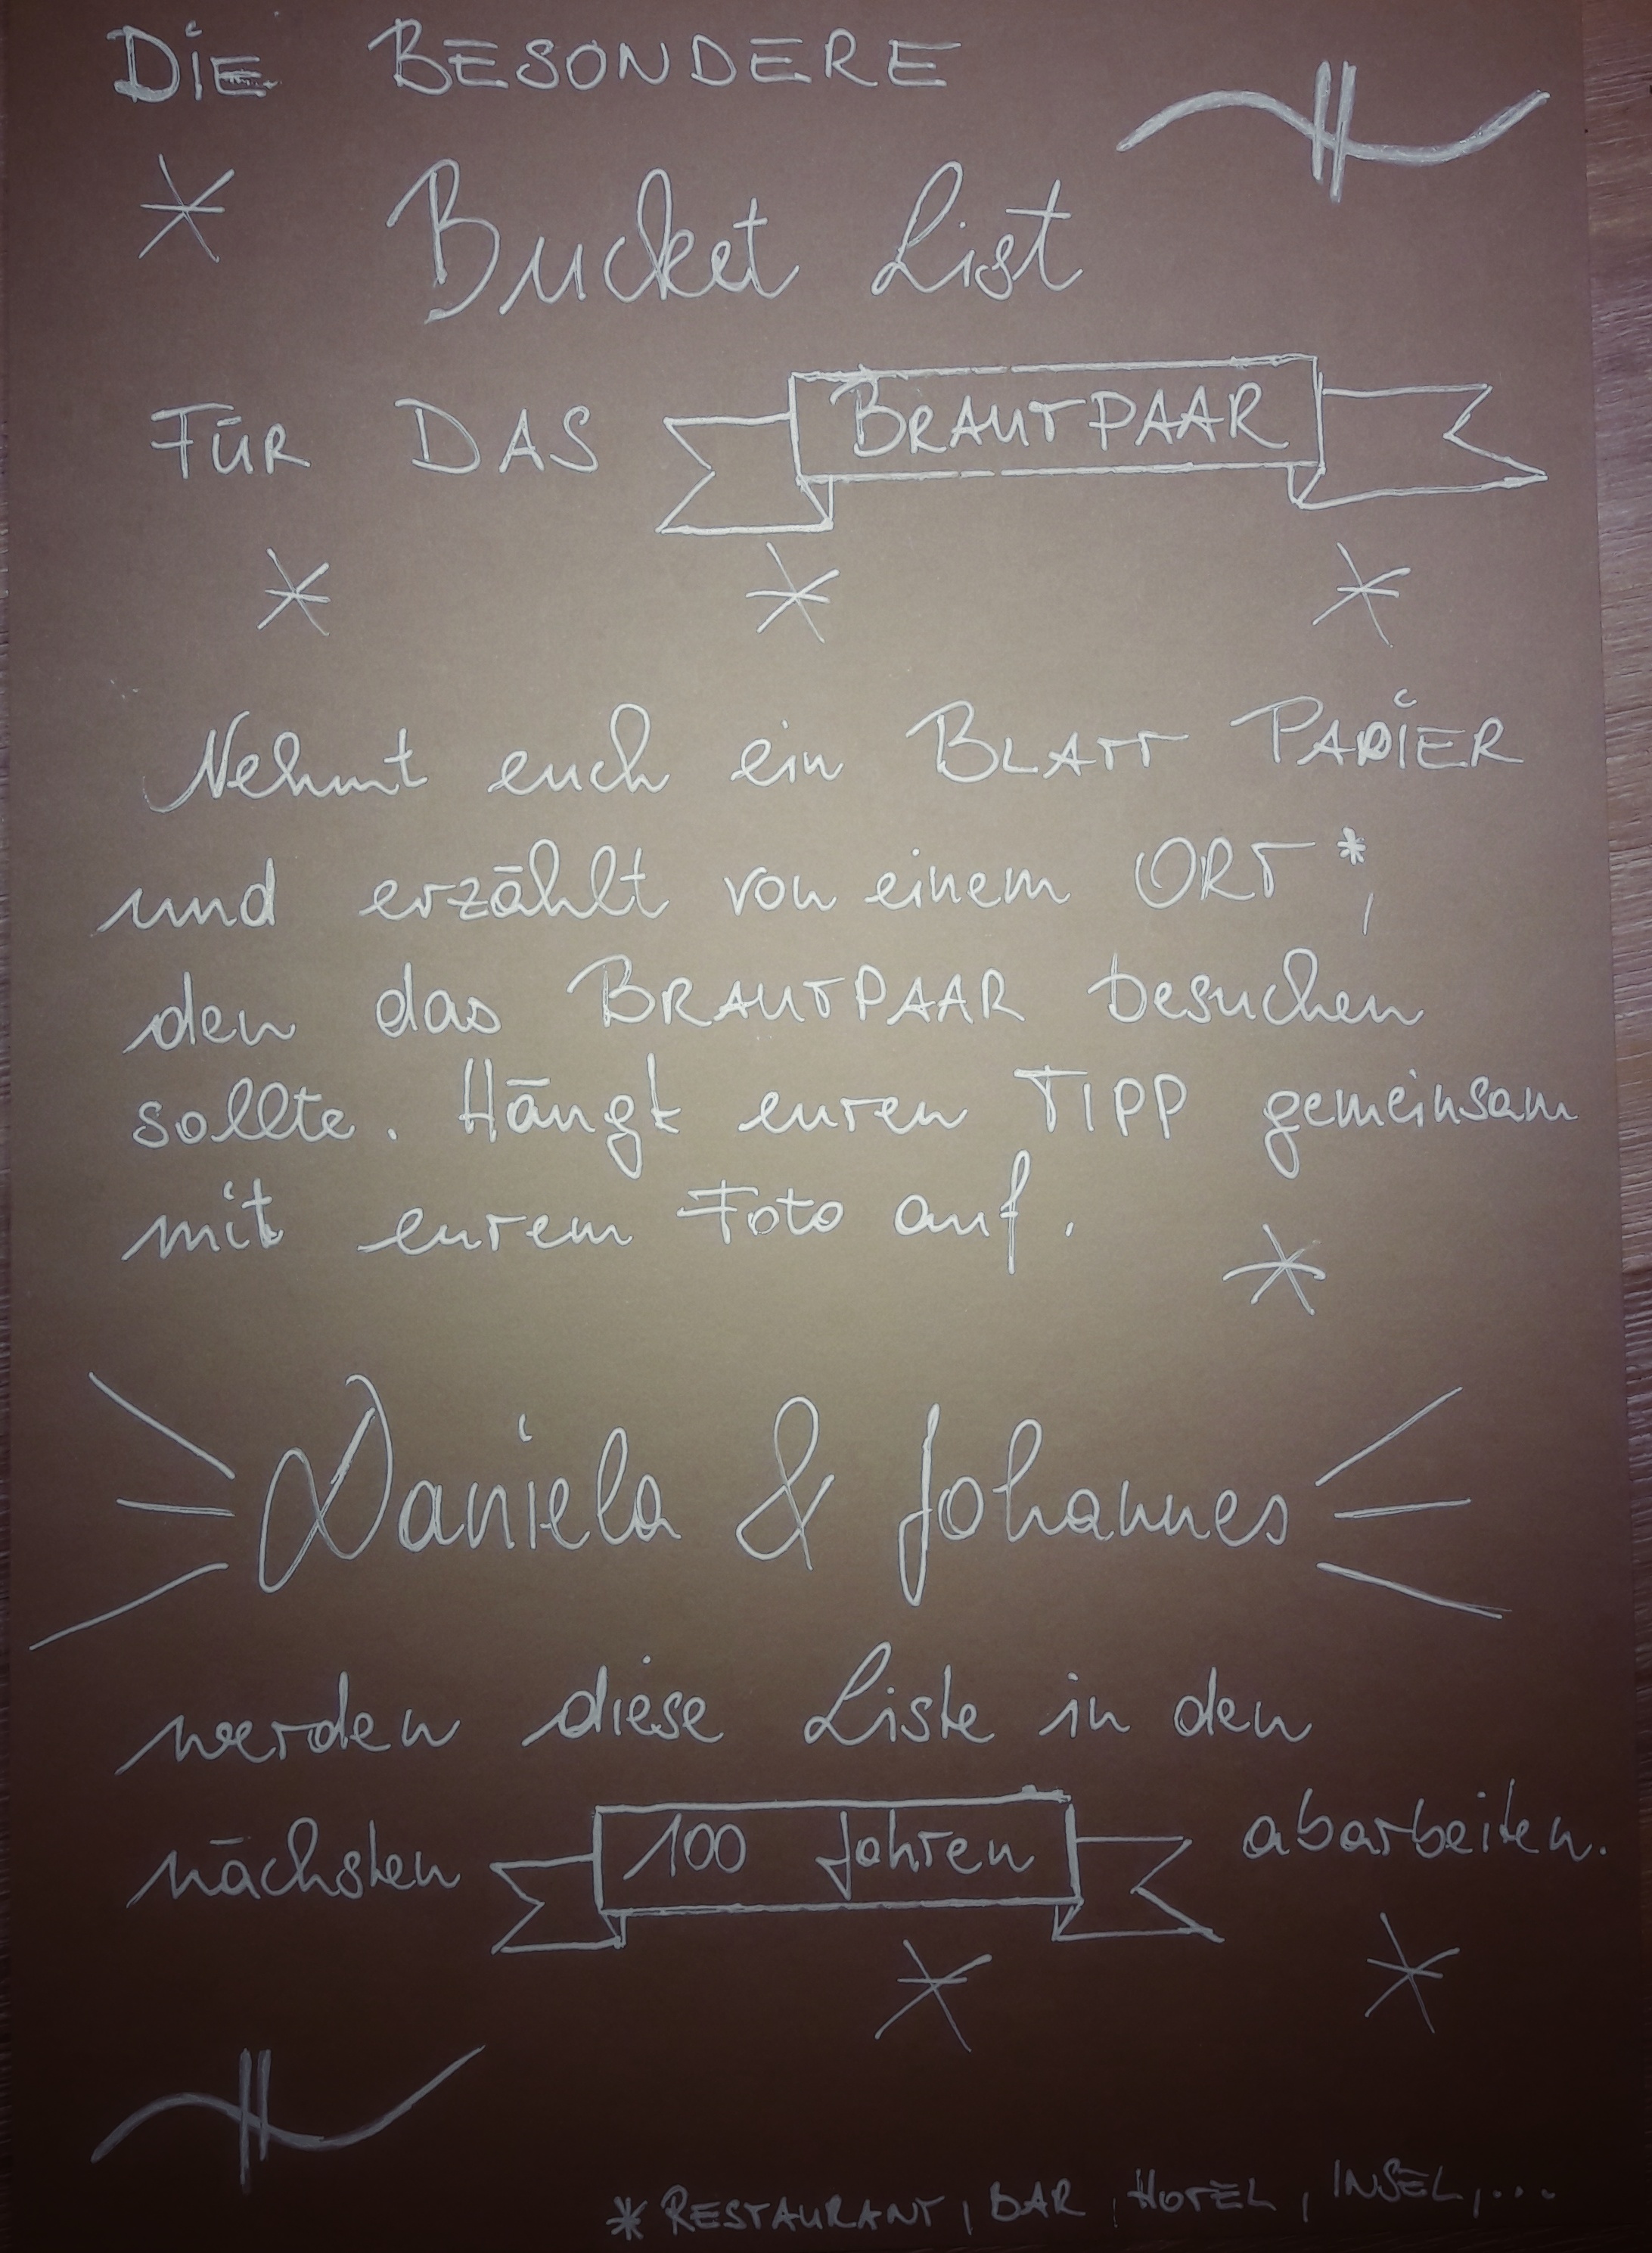 DIE BESONDERE
Bucket List
FÜR DAS BRAUTPAAR
Nehmt euch ein BLATT PAPIER
und erzählt von einem ORT*,
den das BRAUTPAAR besuchen
sollte. Hängt euren TIPP gemeinsam
mit eurem Foto auf.
Daniela & Johannes
werden diese Liste in den
nächsten 100 Jahren abarbeiten.
* RESTAURANT, BAR, HOTEL, INSEL,...